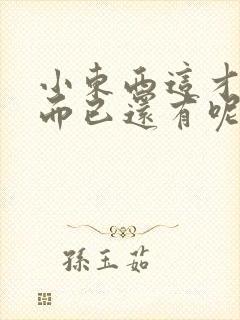 小東西這才
而已還有呢
孫玉茹